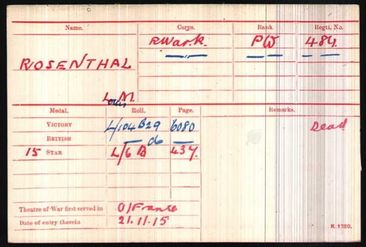 Name. Corps. Rank Regtl. No.
R.War.R. PW 484
ROSENTHAL
M.
Medal. Roll. Page. Remarks.
VICTORY L/104B29 6080 Dead
BRITISH do
15 STAR L/6B 437.
Theatre of War first served in (1) France
Date of entry therein 21.11.15
K. 1380.